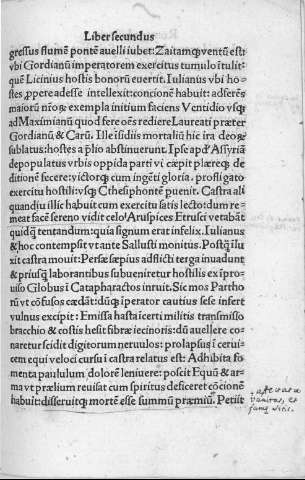 Liber secundus
gressus flumē pontē auelli iubet: Zaitamq; ventū est:
vbi Gordianū imperatorem exercitus tumulo ītulit:
quē Licinius hostis bonorū euertit. Iulianus vbi ho-
stes ,ppere adesse intellexit: concionē habuit: adserēs
maiorū nōīe & exempla initium faciens Ventidio vsq;
ad Maximianū quod fere oēs rediere Laureati præter
Gordianū & Carū. Ille īsidiis mortaliū hic ira deo&
sublatus: hostes a p̄lio abstinuerunt. Ipse apd' Assyriā
depopulatus vrbis oppida parti vi cæpit plæreq; de
ditionē secere: yictor cum īgeti gloria. profligato
exercitu hostili: vsq; Cthesiphontē puenit. Castra ali
quandiu illic habuit cum exercitu satis lecto: dum re-
meat facē sereno vidit celo: Aruspices Etrusci vetabāt
quidq̄ tentandum: quia signum erat infelix. Iulianus
& hoc contempsit vt ante Sallusti monitus. Postq̄ ilu
xit castra mouit: Persæ sæpius adflicti terga inuadunt
& priusq̄ laborantibus subueniretur hostilis ex īpro-
uiso Globus ī Catapharactos inruit. Sic mos Partho
rū vt cōfusos cædāt: dūq; īperator cautius sese insert
vulnus excipit: Emissa hasta īcerti militis transmisso
bracchio & costis hesit fibræ iecinoris: dū auellere co-
naretur scidit digitorum neruulos: prolapsus ī cerui-
cem equi veloci cursu ī castra relatus est: Adhibita fo
menta paululum dolorē leniuere: poscit Equū & ar-
ma vt prælium reuisat cum spiritus deficeret cōcionē
habuit: disseruitq; mortē esse summū præmiū. Petiit